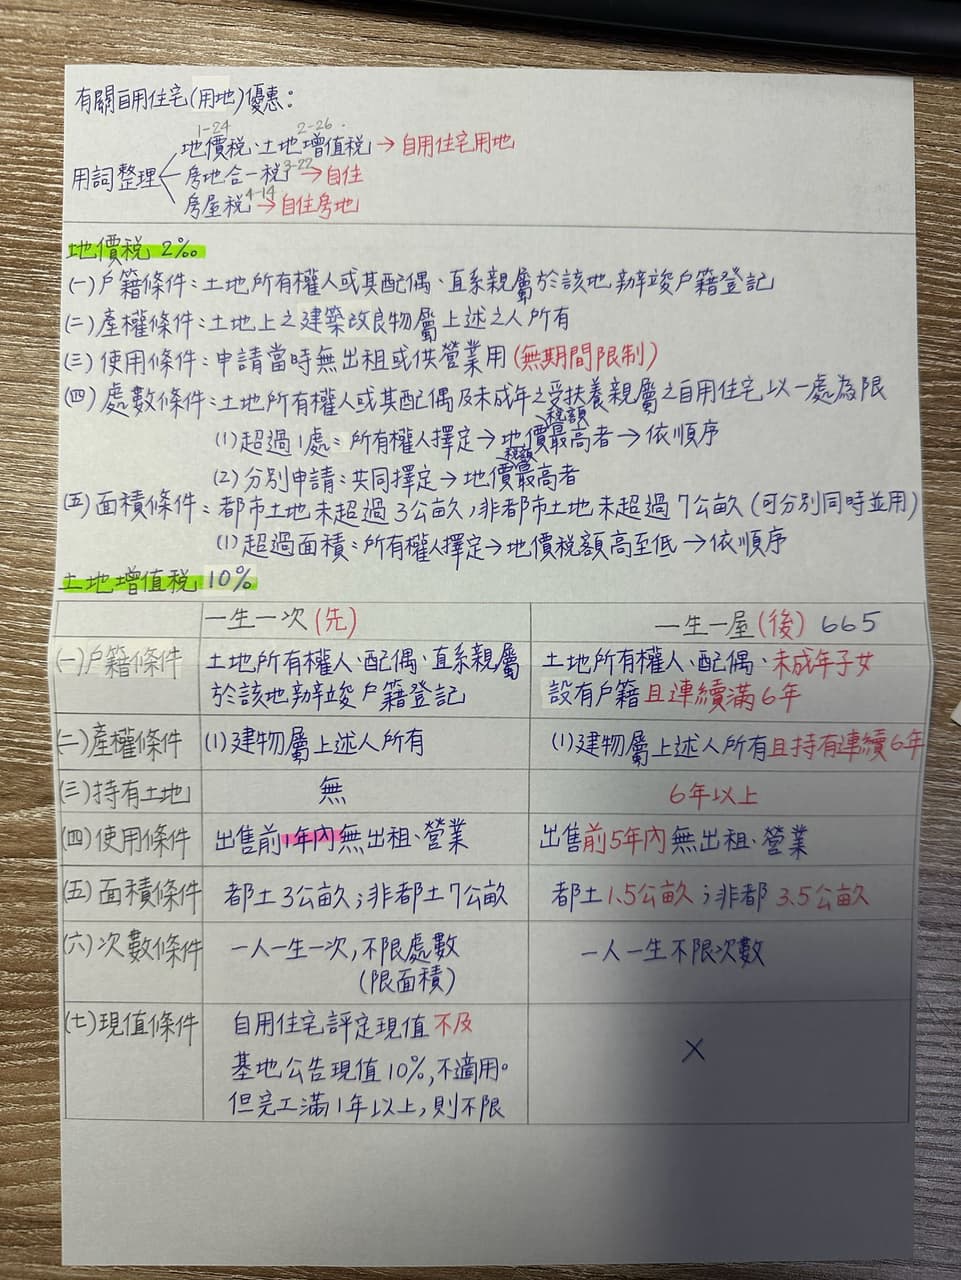 有關自用住宅(用地)優惠:
1-24
2-26.
地價稅、土地增值稅→自用住宅用地
用詞整理
3-22
房地合一稅→自住
4-14
房屋稅→自住房地
地價稅 2‰
(一)戶籍條件:土地所有權人或其配偶、直系親屬於該地辦竣戶籍登記
(二)產權條件:土地上之建築改良物屬上述之人所有
(三)使用條件:申請當時無出租或供營業用(無期間限制)
(四)處數條件:土地所有權人或其配偶及未成年之受扶養親屬之自用住宅以一處為限
稅額
(1)超過1處:所有權人擇定→地價最高者→依順序
稅額
(2)分別申請:共同擇定→地價最高者
(五)面積條件:都市土地未超過3公畝,非都市土地未超過7公畝(可分別同時並用)
(1)超過面積:所有權人擇定→地價稅額高至低→依順序
土地增值稅10%
一生一次(先) 一生一屋(後) 665
(一)戶籍條件 土地所有權人、配偶、直系親屬 土地所有權人、配偶、未成年子女
於該地辦竣戶籍登記 設有戶籍且連續滿6年
(二)產權條件 (1)建物屬上述人所有 (1)建物屬上述人所有且持有連續6年
(三)持有土地 無 6年以上
(四)使用條件 出售前1年內無出租、營業 出售前5年內無出租、營業
(五)面積條件 都土3公畝;非都土7公畝 都土1.5公畝;非都3.5公畝
(六)次數條件 一人一生一次,不限處數 一人一生不限次數
(限面積)
(七)現值條件 自用住宅評定現值不及 X
基地公告現值10%,不適用。
但完工滿1年以上,則不限